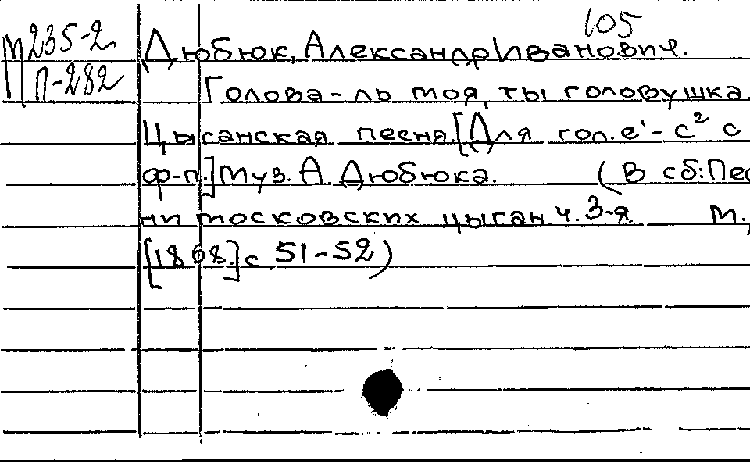 105
М235-2
П-282
Дюбюк, Александр Иванович.
Голова-ль моя, ты головушка.
Цыганская песня [Для гол. e¹-c² с
ф-п.] Муз. А. Дюбюка. (В сб: Пес
ни московских цыган ч. 3-я М.,
[1868.] с 51-52)